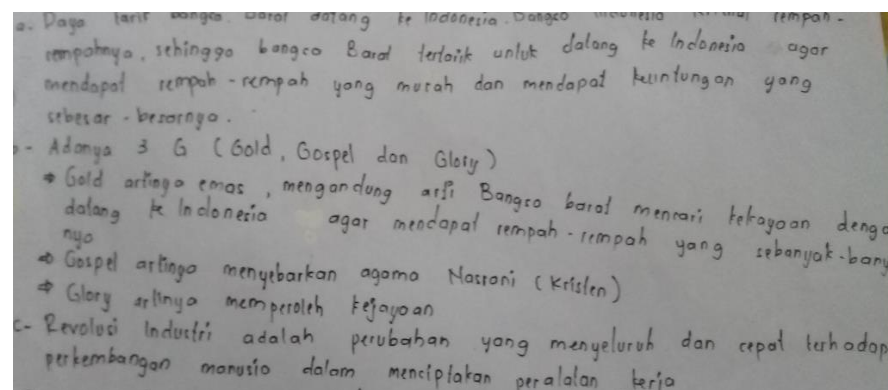 a. Daya tarik bangsa Barat datang ke Indonesia. Bangsa Indonesia rempah-
rempahnya, sehingga bangsa Barat tertarik untuk datang ke Indonesia agar
mendapat rempah-rempah yang murah dan mendapat keuntungan yang
sebesar-besarnya.
- Adanya 3 G (Gold, Gospel dan Glory)
→ Gold artinya emas, mengandung arti Bangsa barat mencari kekayaan
datang ke Indonesia agar mendapat rempah-rempah yang
nya
→ Gospel artinya menyebarkan agama Nasrani (Kristen)
→ Glory artinya memperoleh kejayaan
c- Revolusi Industri adalah perubahan yang menyeluruh dan cepat terhadap
perkembangan manusia dalam menciptakan peralatan kerja